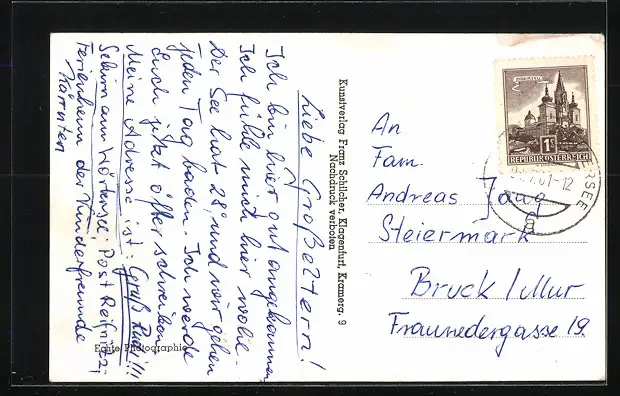 Liebe Großeltern!
Ich bin hier gut angekommen
Ich fühle mich hier wohl.
Der See hat 28°, und wir gehen
jeden Tag baden. Ich werde
Euch jetzt öfter schreiben
Meine Adresse ist: Gruß
Sekirn am Wörtersee, Post Reifnitz;
Ferienheim der Kinderfreunde
Kärnten
Echte Photographie
Kunstverlag Franz Schilcher, Klagenfurt, Kramerg. 9
Nachdruck verboten
REPUBLIK ÖSTERREICH
An
Fam.
Andreas Jaug
Steiermark
Bruck / Mur
Fraunedergasse 19.